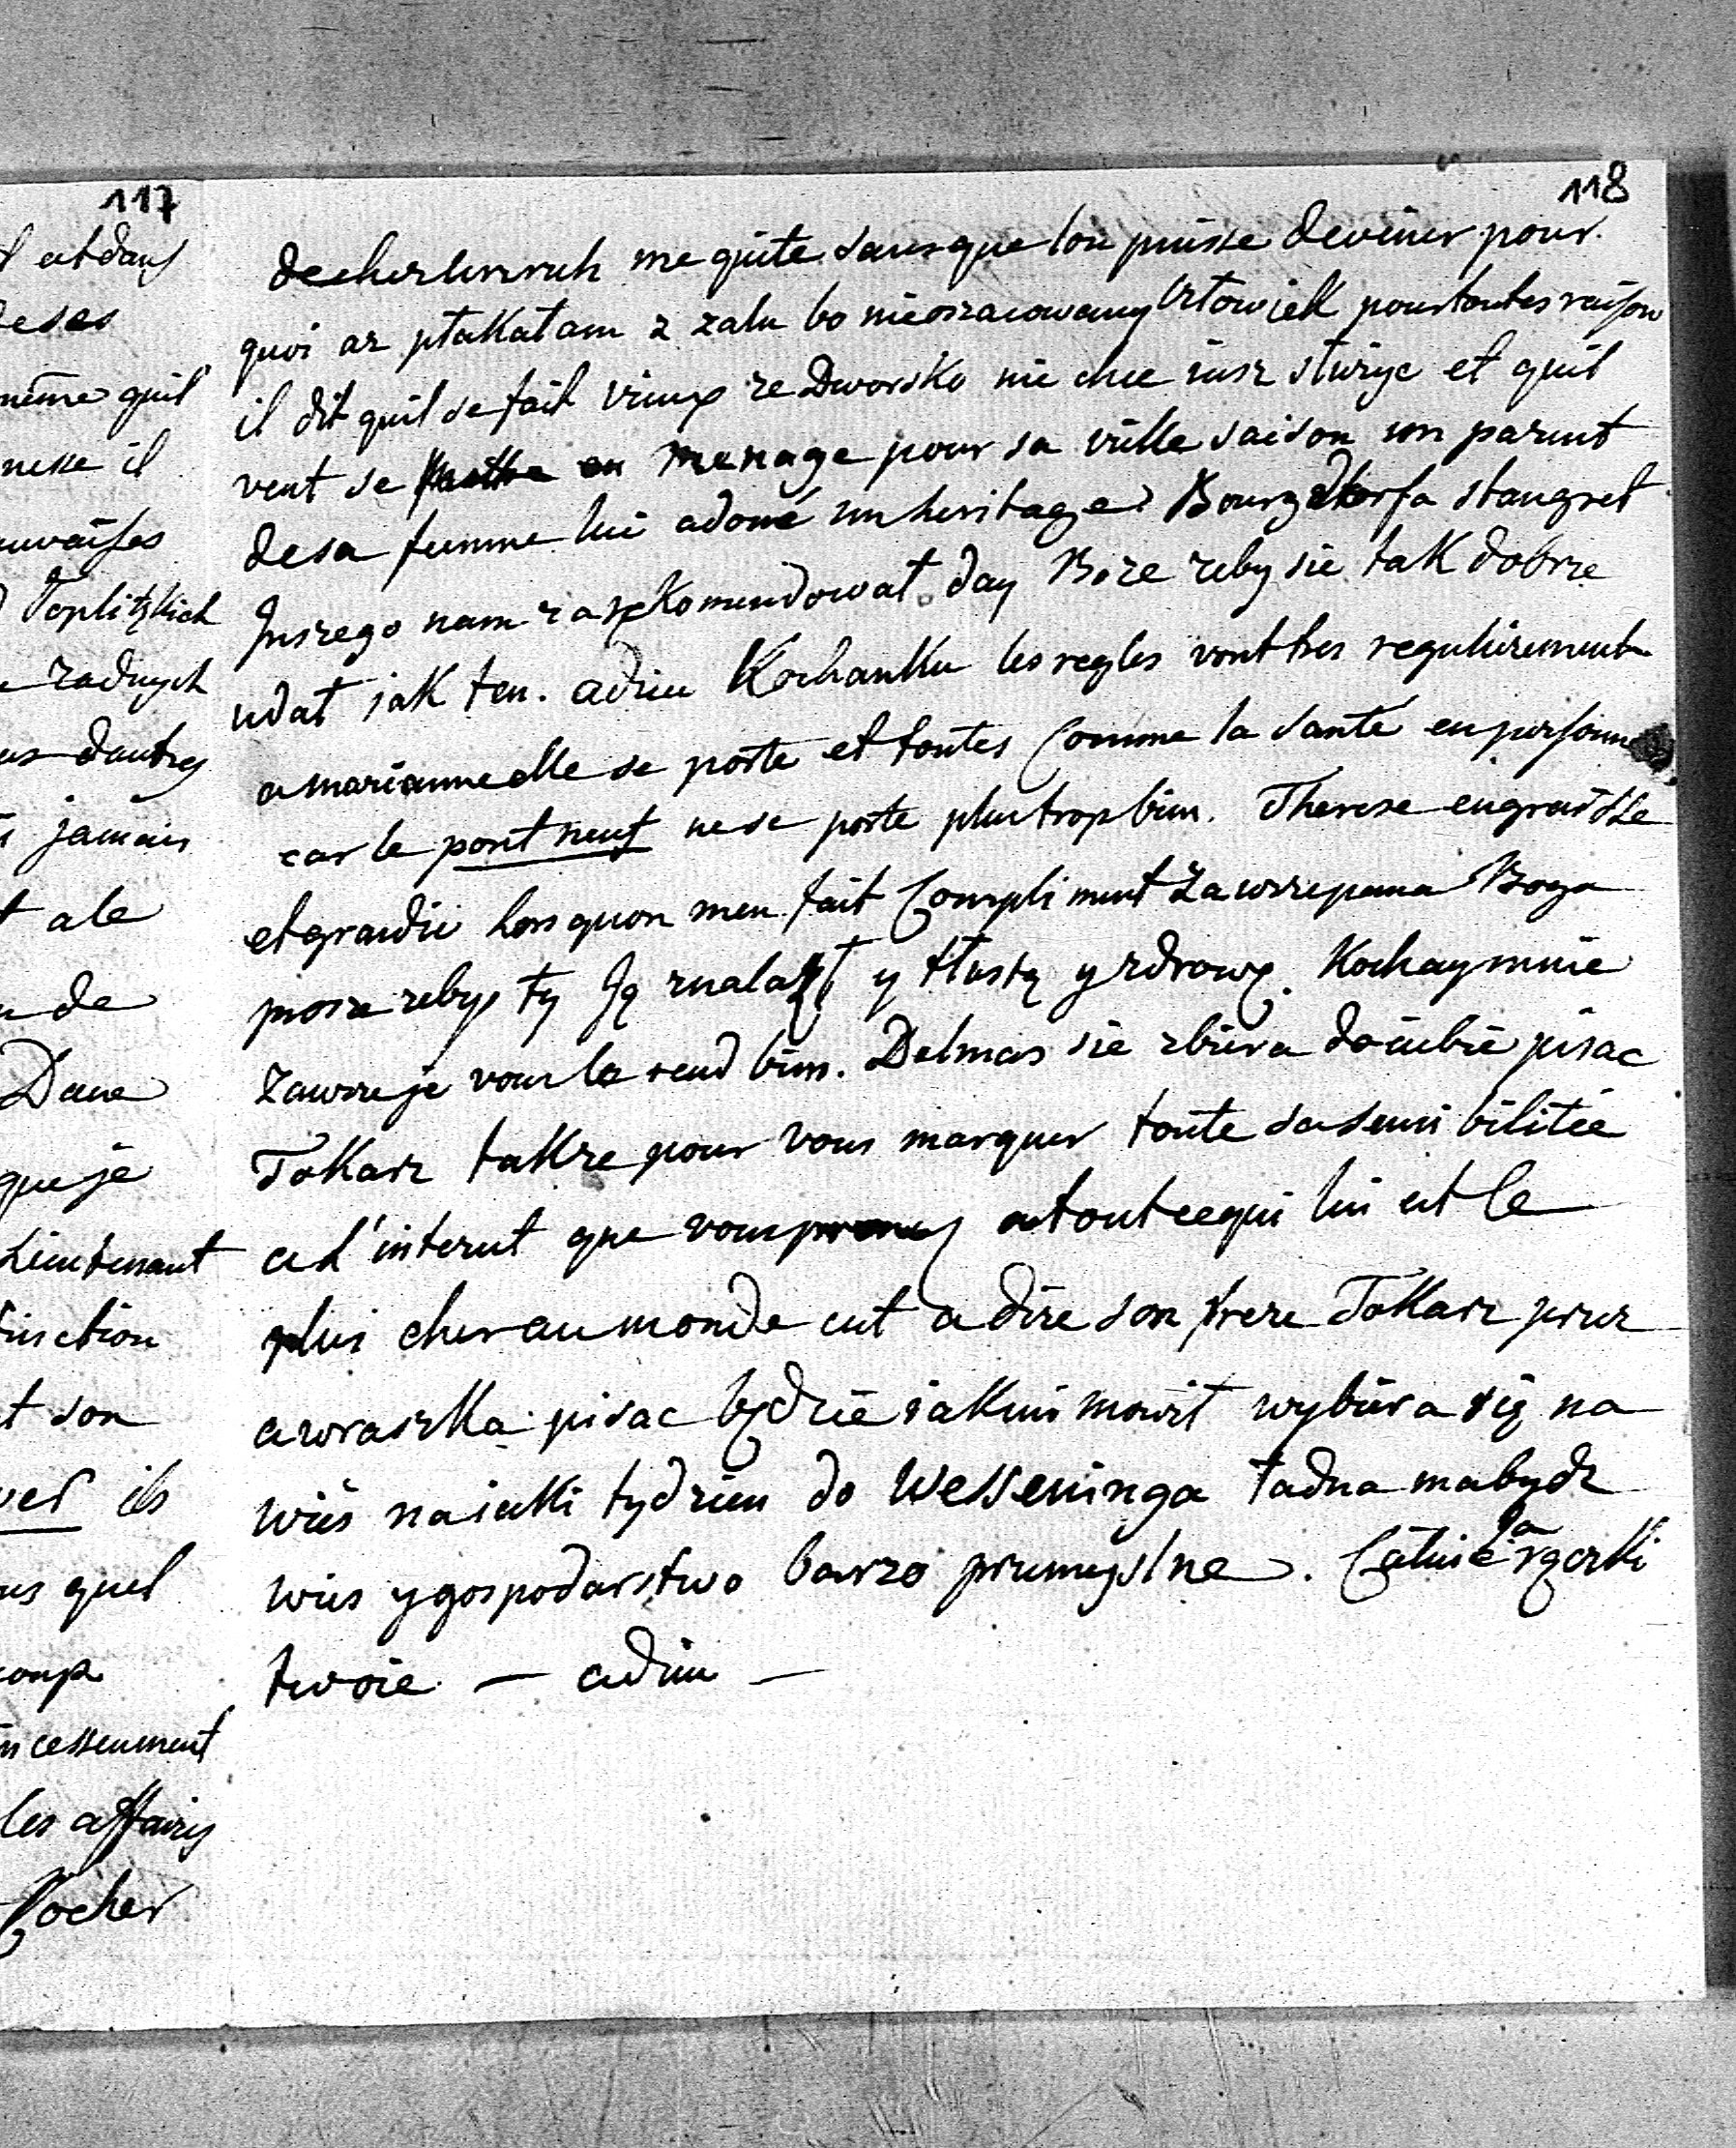 117
t et dans
de ses
même quil
nesse il
auvaises
Toplitzkich
zadnych
us dautres
jamais
t ale
de
Dane
que je
Lieutenant
finction
t son
ver ils
us quel
coup
incessenment
les affaires
Cocher
118
me quite sans que lon puisse deviner pour
quoi az płakałam z zalu bo nieoszacowany człowiek pour toutes raison
il dit quil se fait vieux ze Dworsko nie chce iusz słuzyc et quil
veut se mettre en menage pour sa viellesaison un parent
de sa femme lui a doné un heritage Bourgdorfa stangret
Inszego nam zarekomendował day Boze zeby sie tak dobrze
udał jak ten. adieu Kochanku les regles vont tres regulierement
a marianne elle se porte et toutes comme la santé en personne
car le pont neuf ne se porte plus trop bien. Therese engraisse
et grandie lors quon men fait Compliment zawsze pana Boga
prosze zebys ty Ją znalazł y tłustą y zdrową. Kochay mnie
zawsze je vous le rend bien. Delmas sie zbiera do ciebie pisac
Tokarz takze pour vous marquer toute sa sensibilitée
a L'interest que vous prenez a tout ce qui lui est le
plus cher au monde cest a dire son frere Tokarz przez
awraszka pisac będzie iak mi mowił wybiera się na
wies na iaki tydzien do Wesseninga ładna ma bydz
wies y gospodarstwo barzo przemyslne. Całuie ja rączki
twoie — adieu —